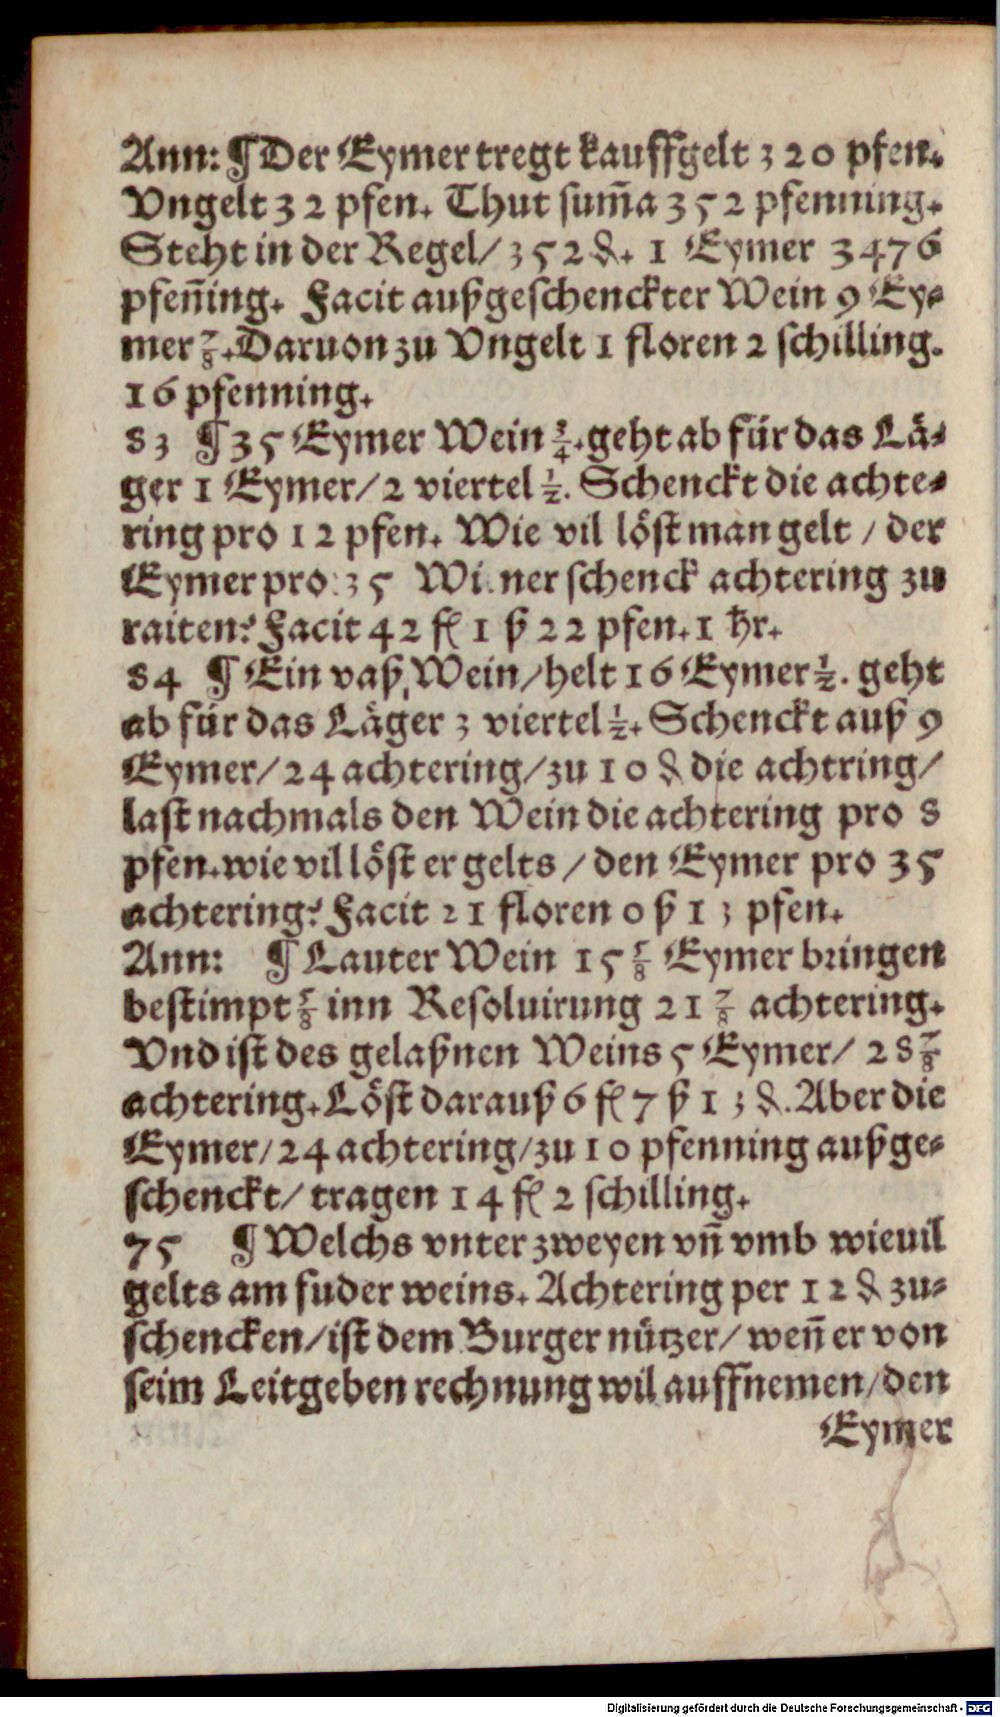 Ann: ¶ Der Eymer tregt kauffgelt 320 pfen.
Vngelt 32 pfen. Thut sum̃a 352 pfenning.
Steht in der Regel/ 352 ₰. 1 Eymer 3476
pfen̄ing. Facit außgeschenckter Wein 9 Ey-
mer 7/8. Daruon zu Vngelt 1 floren 2 schilling.
16 pfenning.
83 ¶ 35 Eymer Wein 3/4. geht ab für das Lä-
ger 1 Eymer/ 2 viertel 1/2. Schenckt die achte-
ring pro 12 pfen. Wie vil löst man gelt / der
Eymer pro 35 Wiener schenck achtering zu
raiten? Facit 42 fl 1 ß 22 pfen. 1 hr.
84 ¶ Ein vaß Wein/ helt 16 Eymer 1/2. geht
ab für das Läger 3 viertel 1/2. Schenckt auß 9
Eymer/ 24 achtering/ zu 10 ₰ die achtring/
last nachmals den Wein die achtering pro 8
pfen. wie vil löst er gelts / den Eymer pro 35
achtering? Facit 21 floren 0 ß 13 pfen.
Ann: ¶ Lauter Wein 15 5/8 Eymer bringen
bestimpt 5/8 inn Resoluirung 21 7/8 achtering.
Vnd ist des gelaßnen Weins 5 Eymer/ 28 7/8
achtering. Löst darauß 6 fl 7 ß 13 ₰. Aber die
Eymer/ 24 achtering/ zu 10 pfenning außge-
schenckt/ tragen 14 fl 2 schilling.
75 ¶ Welchs vnter zweyen vn̄ vmb wieuil
gelts am fuder weins. Achtering per 12 ₰ zu-
schencken/ ist dem Burger nützer/ wen̄ er von
seim Leitgeben rechnung wil auffnemen/ den
Eymer
Digitalisierung gefördert durch die Deutsche Forschungsgemeinschaft - DFG